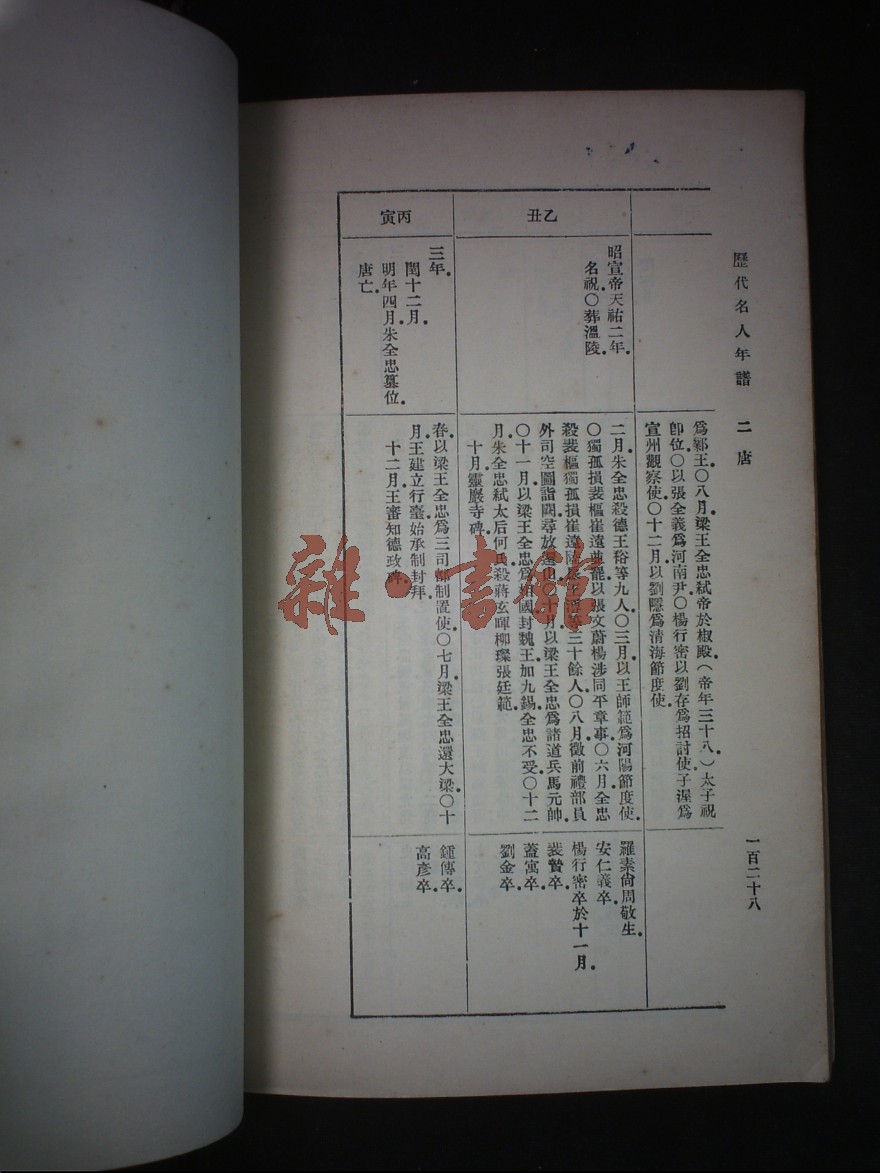 歷代名人年譜　二唐　一百二十八
爲鄆王○八月梁王全忠弒帝於椒殿（帝年三十八）太子祝
卽位○以張全義爲河南尹○楊行密以劉存爲招討使子渥爲
宣州觀察使○十二月以劉隱爲清海節度使
乙丑
昭宣帝天祐二年
名祝○葬溫陵
二月朱全忠殺德王裕等九人○三月以王師範爲河陽節度使
○獨孤損裴樞崔遠並罷以張文蔚楊涉同平章事○六月全忠
殺裴樞獨孤損崔遠等三十餘人○八月徵前禮部員
外司空圖詣闕尋放還山○十月以梁王全忠爲諸道兵馬元帥
○十一月以梁王全忠爲相國封魏王加九錫全忠不受○十二
月朱全忠弒太后何氏殺蔣玄暉柳璨張廷範
十月靈巖寺碑
羅素尙周敬生
安仁義卒
楊行密卒於十一月
裴贄卒
蓋寓卒
劉金卒
丙寅
三年
閏十二月
明年四月朱全忠篡位
唐亡
春以梁王全忠爲三司都制置使○七月梁王全忠還大梁○十
月王建立行臺始承制封拜
十二月王審知德政碑
鍾傳卒
高彥卒
雜·書館